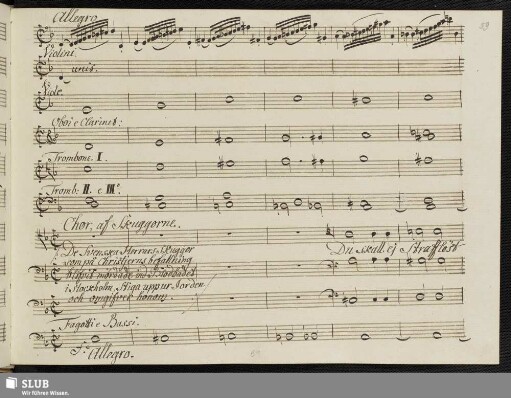 Allegro.
89
Violini.
unis.
Viole.
Oboi e Clarinet:
Trombone. I.
Tromb: II. e III.
Chor. af Skuggorne.
De Svenska Herrars Skuggor
som på Christierns befallning
blifvit mördade
i Stockholm, stiga upp ur Jorden
och omgifver honom.
Du skall ej Strafflöst
Fagotti e Bassi.
Allegro.
SLUB
Wir führen Wissen.